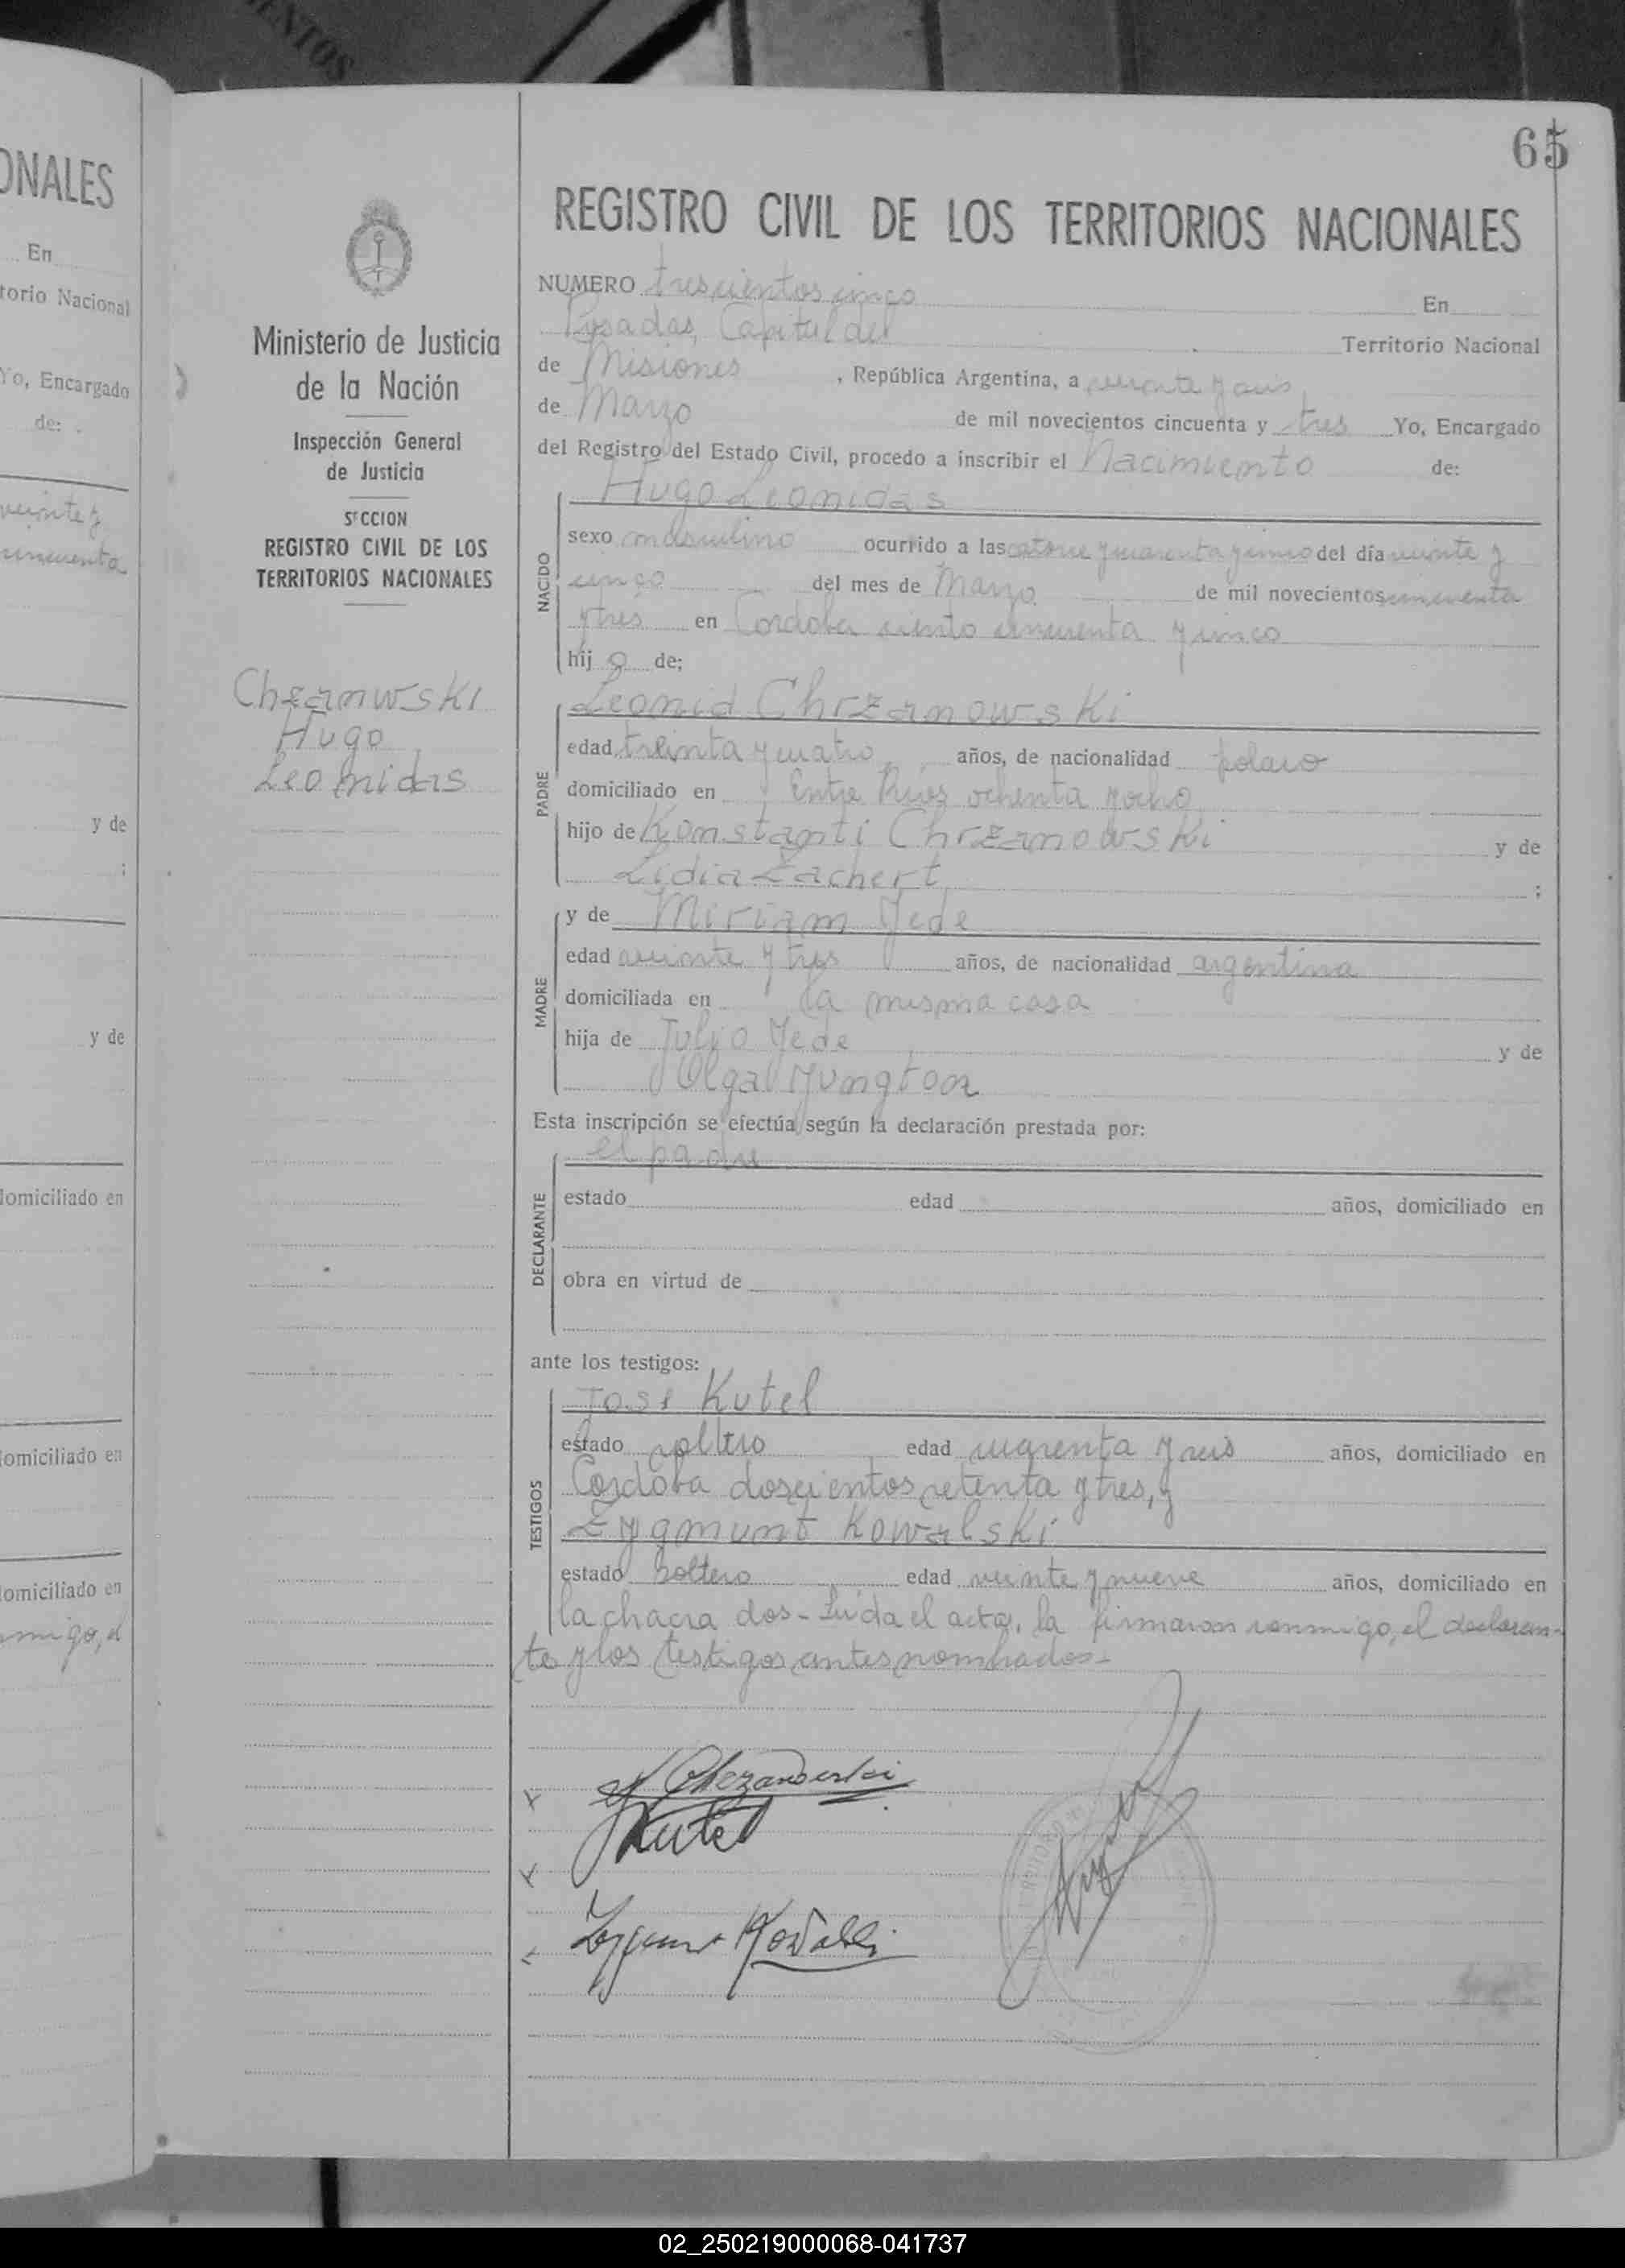 ENTOS
ONALES
En
torio Nacional
Yo, Encargado
de:
veinte y
cincuenta
y de
;
y de
domiciliado en
domiciliado en
domiciliado en
nmigo, el
Ministerio de Justicia
de la Nación
Inspección General
de Justicia
SECCION
REGISTRO CIVIL DE LOS
TERRITORIOS NACIONALES
Chranwski
Hugo
Leonidas
65
REGISTRO CIVIL DE LOS TERRITORIOS NACIONALES
NUMERO trescientos cinco En
Posadas, Capital del Territorio Nacional
de Misiones, República Argentina, a veinte y seis
de Marzo de mil novecientos cincuenta y tres Yo, Encargado
del Registro del Estado Civil, procedo a inscribir el Nacimiento de:
NACIDO
Hugo Leonidas
sexo masculino ocurrido a las catorce y cuarenta y cinco del día veinte y
cinco del mes de Marzo de mil novecientos cincuenta
y tres en Cordoba ciento cincuenta y cinco
hijo de;
PADRE
Leonid Chrzanowski
edad treinta y cuatro años, de nacionalidad polaco
domiciliado en Entre Rios ochenta y ocho
hijo de Konstanti Chrzanowski y de
Lidia Zachert ;
MADRE
y de Miriam Yede
edad veinte y tres años, de nacionalidad argentina
domiciliada en la misma casa
hija de Julio Yede y de
Olga Yungton
Esta inscripción se efectúa según la declaración prestada por:
DECLARANTE
el padre
estado edad años, domiciliado en
obra en virtud de
ante los testigos:
TESTIGOS
José Kutel
estado soltero edad cuarenta y seis años, domiciliado en
Cordoba doscientos setenta y tres, y
Zygmunt Kowalski
estado soltero edad veinte y nueve años, domiciliado en
la chacra dos - Leida el acta, la firmaron conmigo, el declaran-
te y los testigos antes nombrados -
Chrzanowski
Kutel
Zygmunt Kowalski
02_250219000068-041737